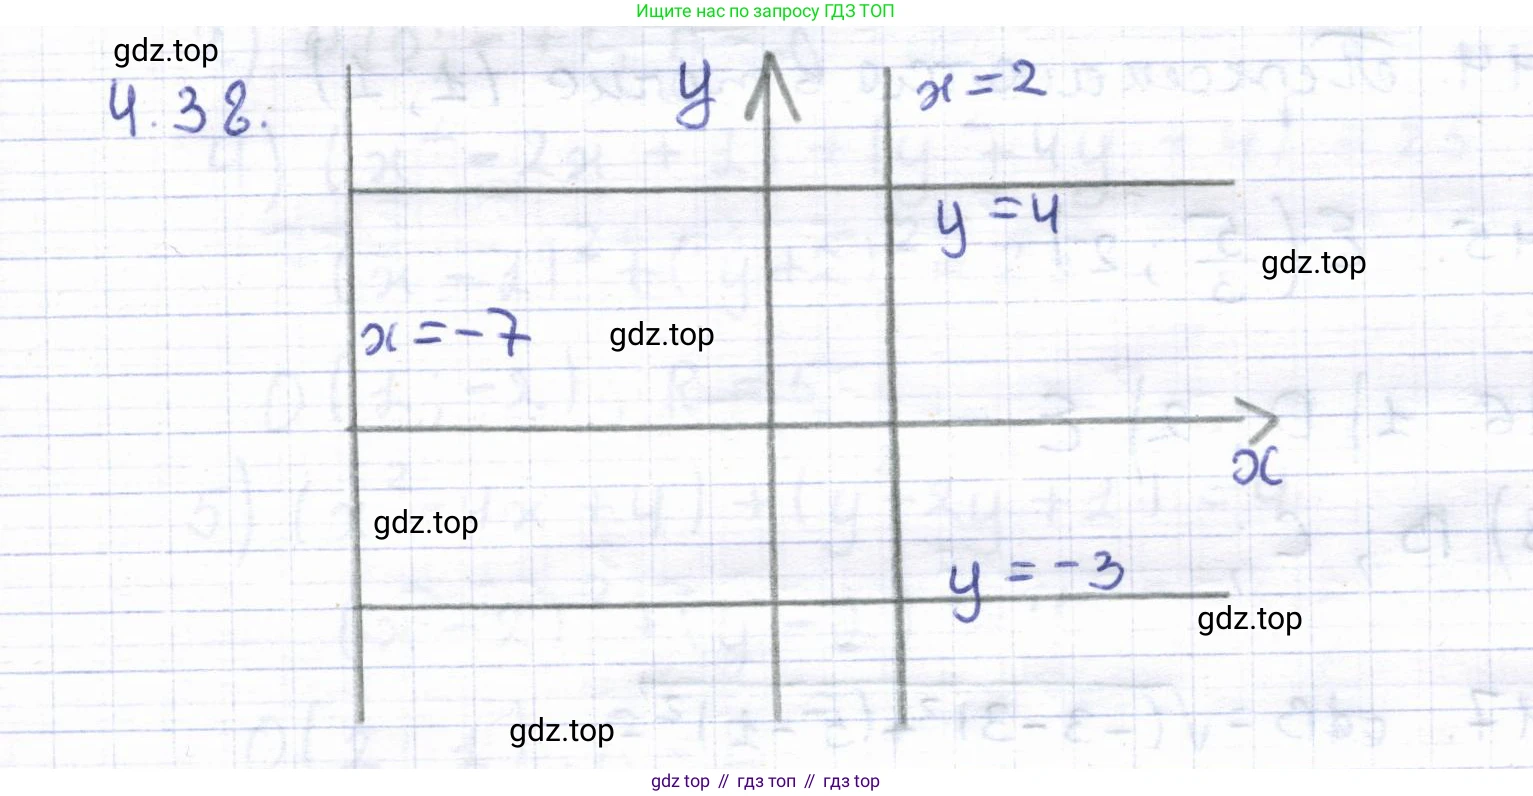 Ищите нас по запросу ГДЗ ТОП
gdz.top
4.38.
y
x = 2
y = 4
gdz.top
x = -7
gdz.top
x
gdz.top
y = -3
gdz.top
gdz.top
gdz top // гдз топ // гдз top